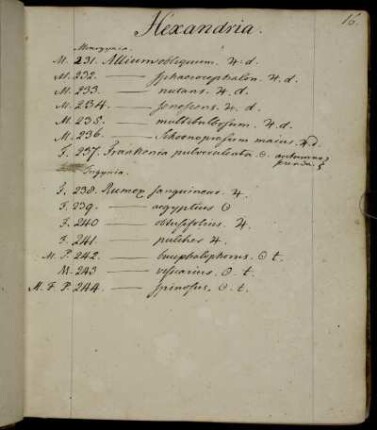 16.
Hexandria.
Monogynia.
M. 231. Allium obliquum. ♃. d.
M. 232. —— sphaerocephalon. ♃. d.
M. 233. —— nutans. ♃. d.
M. 234. —— senescens. ♃. d.
M. 235. —— multibulbosum. ♃. d.
M. 236. —— Schoenoprasum maius. ♃. d.
F. 237. Frankenia pulverulenta ☉.
Trigynia.
F. 238. Rumex sanguineus. ♃.
F. 239. —— aegyptius ☉
F. 240 —— obtusifolius. ♃.
F. 241. —— pulcher ♃.
M. F. 242. —— bucephalophorus. ☉ t.
M. 243 —— vesicarius. ☉ t.
M. F. P. 244. —— spinosus. ☉. t.